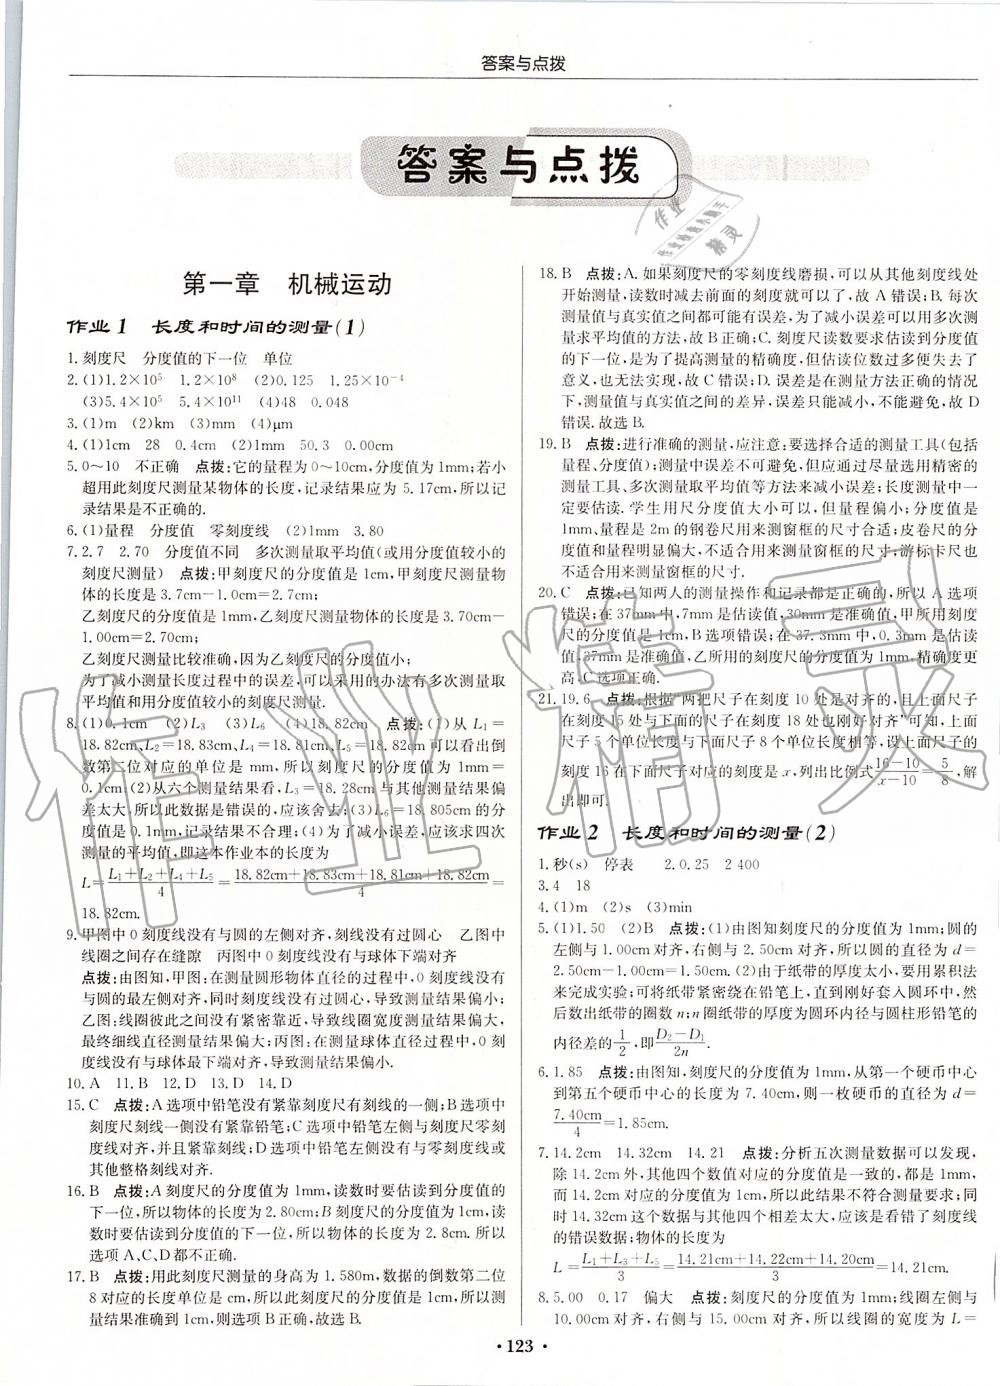 答案与点拨
答案与点拨
第一章　机械运动
作业1　长度和时间的测量(1)
1.刻度尺　分度值的下一位　单位
2.(1)1.2×10⁵　1.2×10⁸　(2)0.125　1.25×10⁻⁴
(3)5.4×10⁵　5.4×10¹¹　(4)48　0.048
3.(1)m　(2)km　(3)mm　(4)μm
4.(1)1cm　28　0.4cm　(2)1mm　50.3　0.00cm
5.0～10　不正确　点拨:它的量程为0～10cm,分度值为1mm;若小
超用此刻度尺测量某物体的长度,记录结果应为 5.17cm,所以记
录结果是不正确的.
6.(1)量程　分度值　零刻度线　(2)1mm　3.80
7.2.7　2.70　分度值不同　多次测量取平均值(或用分度值较小的
刻度尺测量)　点拨:甲刻度尺的分度值是1cm,甲刻度尺测量物
体的长度是3.7cm－1.0cm=2.7cm;
乙刻度尺的分度值是1mm,乙刻度尺测量物体的长度是3.70cm－
1.00cm=2.70cm;
乙刻度尺测量比较准确,因为乙刻度尺的分度值小;
为了减小测量长度过程中的误差,可以采用的办法有多次测量取
平均值和用分度值较小的刻度尺测量.
8.(1)0.1cm　(2)L₃　(3)L₆　(4)18.82cm　点拨:(1)从 L₁=
18.82cm,L₂=18.83cm,L₄=18.81cm,L₅=18.82cm可以看出倒
数第二位对应的单位是 mm,所以刻度尺的分度值为 1mm=
0.1cm;(2)从六个测量结果看,L₃=18.28cm与其他测量结果偏
差太大,所以此数据是错误的,应该舍去;(3)L₆=18.805cm的分
度值是0.1mm,记录结果不合理;(4)为了减小误差,应该求四次
测量的平均值,即这本作业本的长度为
L=(L₁+L₂+L₄+L₅)/4=(18.82cm+18.83cm+18.81cm+18.82cm)/4=
18.82cm.
9.甲图中0刻度线没有与圆的左侧对齐,刻度线没有过圆心　乙图中
线圈之间存在缝隙　丙图中0刻度线没有与球体下端对齐
点拨:由图知,甲图:在测量圆形物体直径的过程中,0刻度线没有
与圆的最左侧对齐,同时刻度线没有过圆心,导致测量结果偏小;
乙图:线圈彼此之间没有紧密靠近,导致线圈宽度测量结果偏大,
最终细线直径测量结果偏大;丙图:在测量球体直径过程中,0刻
度线没有与球体最下端对齐,导致测量结果偏小.
10.A　11.B　12.D　13.D　14.D
15.C　点拨:A选项中铅笔没有紧靠刻度尺有刻线的一侧;B选项中
刻度尺刻线一侧没有紧靠铅笔;C选项中铅笔左侧与刻度尺零刻
度线对齐,并且紧靠刻线;D选项中铅笔左侧没有与零刻度线或
其他整格刻线对齐.
16.B　点拨:A刻度尺的分度值为1mm,读数时要估读到分度值的
下一位,所以物体的长度为2.80cm;B刻度尺的分度值为1cm,读
数时要估读到分度值的下一位,所以物体的长度为2.8cm.所以
选项A、C、D都不正确.
17.B　点拨:用此刻度尺测量的身高为1.580m,数据的倒数第二位
8对应的长度单位是 cm,所以此刻度尺的分度值是1cm,所以测
量结果准确到1cm,则选项B正确,故选B.
18.B　点拨:A.如果刻度尺的零刻度线磨损,可以从其他刻度线处
开始测量,读数时减去前面的刻度就可以了,故A错误;B.每次
测量值与真实值之间都可能有误差,为了减小误差可以用多次测
量求平均值的方法,故B正确;C.刻度尺读数要求估读到分度值
的下一位,是为了提高测量的精确度,但估读位数过多便失去了
意义,也无法实现,故C错误;D.误差是在测量方法正确的情况
下,测量值与真实值之间的差异,误差只能减小,不能避免,故D
错误.故选B.
19.B　点拨:进行准确的测量,应注意:要选择合适的测量工具(包括
量程、分度值);测量中误差不可避免,但应通过尽量选用精密的
测量工具、多次测量取平均值等方法来减小误差;长度测量中一
定要估读.学生用尺分度值大小可以,但量程偏小;分度值是
1mm、量程是2m的钢卷尺用来测窗框的尺寸合适;皮卷尺的分
度值和量程明显偏大,不适合用来测量窗框的尺寸;游标卡尺也
不适合用来测量窗框的尺寸.
20.C　点拨:已知两人的测量操作和记录都是正确的,所以A选项
错误;在37mm中,7mm是估读值,30mm是准确值,甲所用刻度
尺的分度值是1cm,B选项错误;在37.3mm中,0.3mm是估读
值,37mm是准确值,乙所用的刻度尺的分度值为1mm,精确度更
高,C选项正确.
21.19.6　点拨:根据“两把尺子在刻度 10 处是对齐的,且上面尺子
在刻度15处与下面的尺子在刻度18处也刚好对齐”可知,上面
尺子5个单位长度与下面尺子8个单位长度相等,设上面尺子的
刻度16在下面尺子对应的刻度是x,列出比例式(16－10)/(x－10)=5/8,解
出即可.
作业2　长度和时间的测量(2)
1.秒(s)　停表　2.0.25　2 400
3.4　18
4.(1)m　(2)s　(3)min
5.(1)1.50　(2)B　点拨:(1)由图知刻度尺的分度值为1mm;圆的
左侧与 1.00cm 对齐,右侧与 2.50cm 对齐,所以圆的直径为 d=
2.50cm－1.00cm=1.50cm.(2)由于纸带的厚度太小,要用累积法
来完成实验;可将纸带紧密绕在铅笔上,直到刚好套入圆环中,然
后数出纸带的圈数 n;n圈纸带的厚度为圆环内径与圆柱形铅笔的
内径差的1/2,即(D₂－D₁)/2n.
6.1.85　点拨:由图知,刻度尺的分度值为1mm,从第一个硬币中心
到第五个硬币中心的长度为 7.40cm,则一枚硬币的直径为 d=
7.40cm/4=1.85cm.
7.14.2cm　14.32cm　14.21　点拨:分析五次测量数据可以发现,
除14.2cm外,其他四个数值对应的分度值是一致的,都是1mm,
而14.2cm对应的分度值为1cm,所以此结果不符合测量要求;同
时14.32cm这个数据与其他四个相差太大,应该是看错了刻度线
的错误数据;物体的长度为
L=(L₁+L₃+L₅)/3=(14.21cm+14.22cm+14.20cm)/3=14.21cm.
8.5.00　0.17　偏大　点拨:刻度尺的分度值为1mm;线圈左侧与
10.00cm 对齐,右侧与 15.00cm 对齐,所以线圈的宽度为 L=
• 123 •
作业精灵